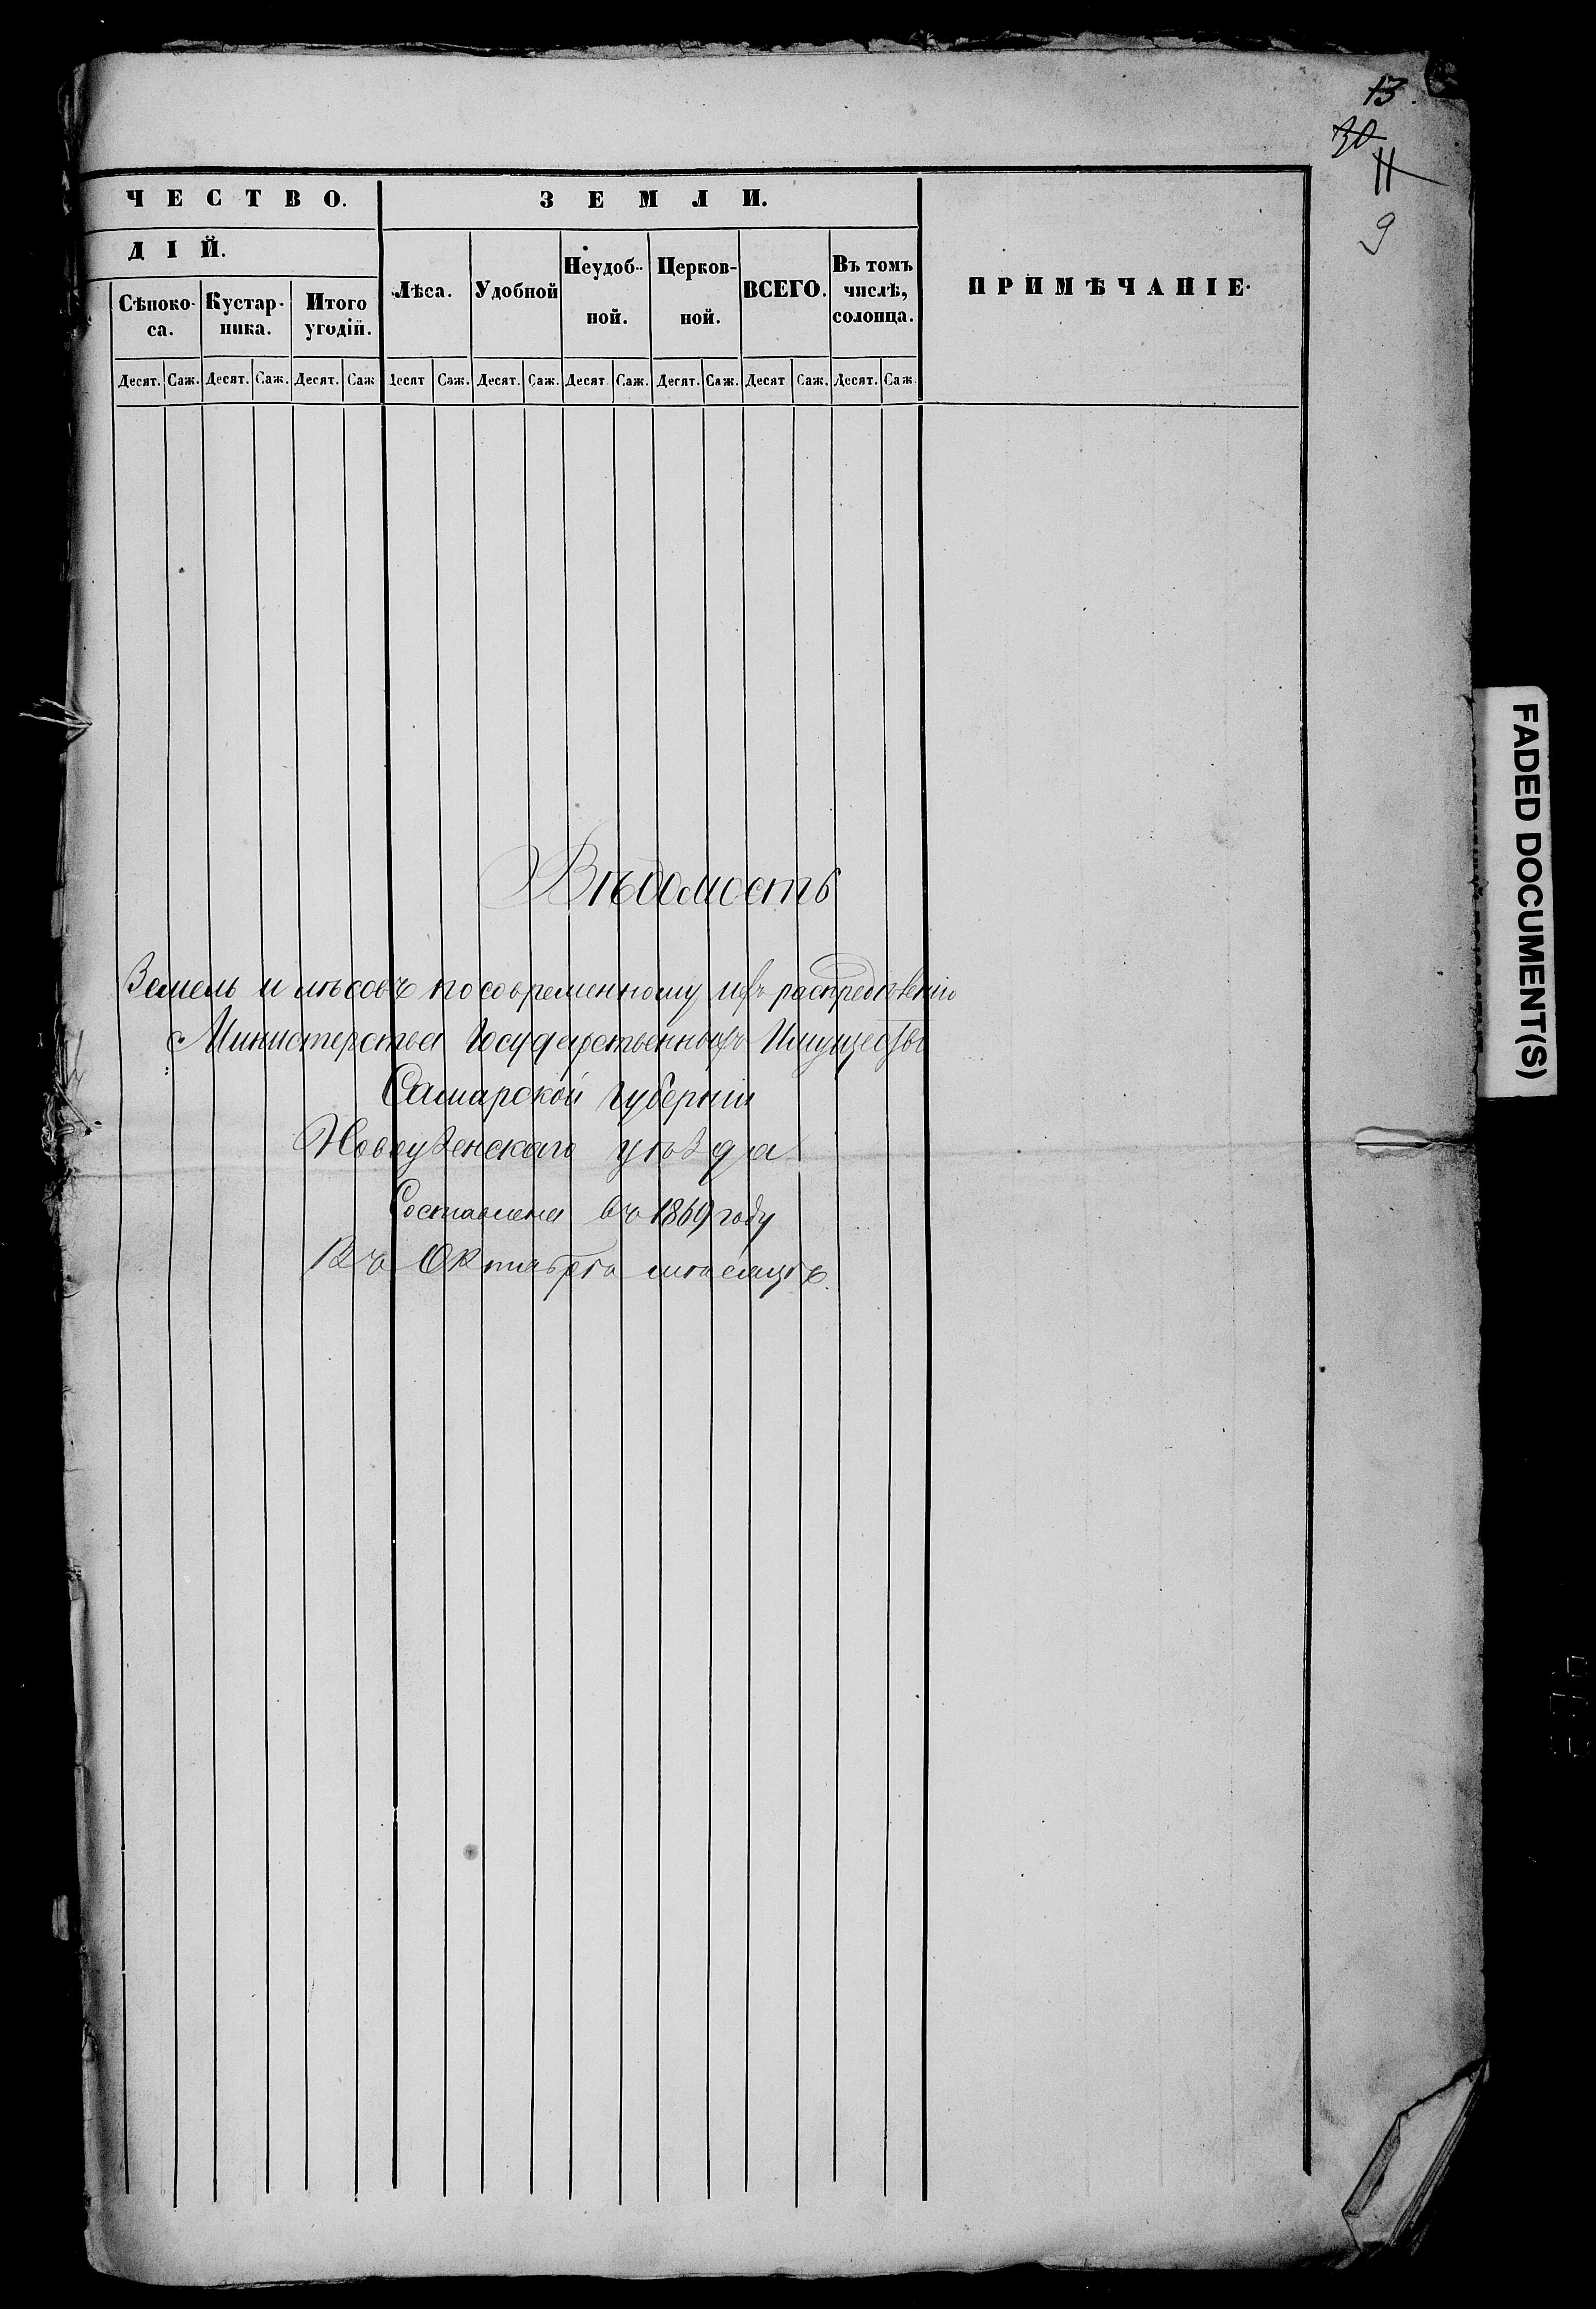 13.
30
11
9
ЧЕСТВО.
ЗЕМЛИ.
ДІЙ.
Сѣноко-
са.
Кустар-
ника.
Итого
угодій.
Лѣса.
Удобной
Неудоб-
ной.
Церков-
ной.
ВСЕГО.
Въ томъ
числѣ,
солонца.
ПРИМѢЧАНІЕ.
Десят. Саж. Десят. Саж. Десят. Саж Десят Саж. Десят. Саж. Десят Саж. Десят. Саж. Десят Саж. Десят. Саж.
Вѣдомость
Земель и лѣсовъ по современному ихъ распредѣленію
Министерства Государственныхъ Имуществъ
Самарской губерніи
Новоузенскаго уѣзда
Составлена въ 1869 году
Въ Октябрѣ мѣсяцѣ.
FADED DOCUMENT(S)